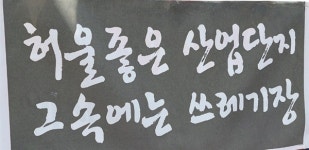 허울좋은 산업단지
그속에는 쓰레기장